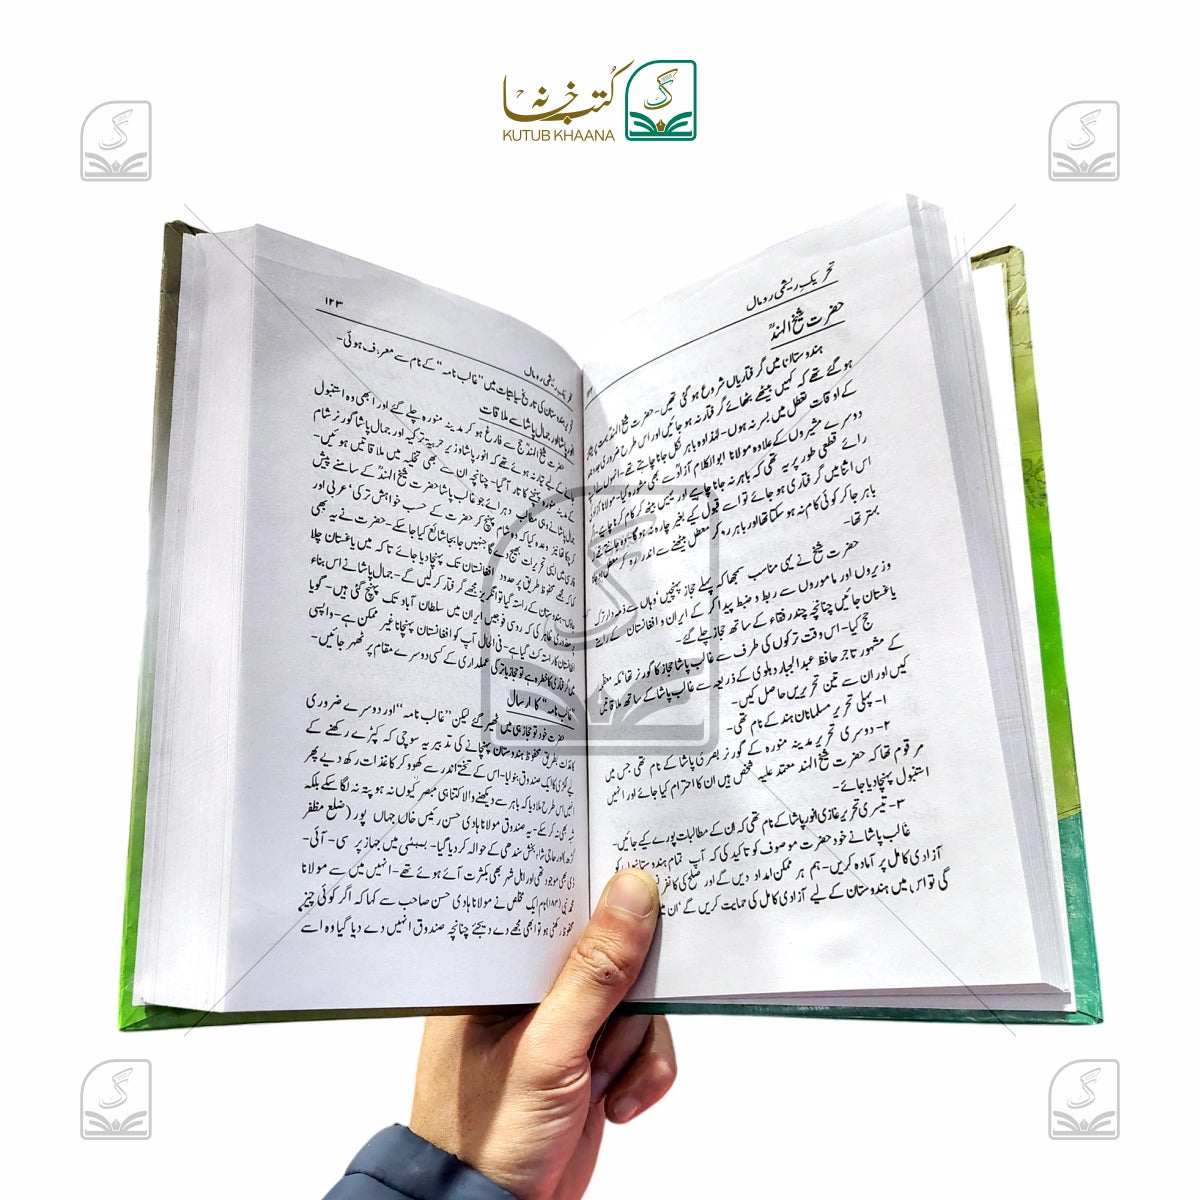 کتب خانہ
KUTUB KHAANA
تحریک ریشمی رومال
حضرت شیخ الہندؒ
ہندوستان میں گرفتاریاں شروع ہو گئی تھیں۔ حضرت شیخ الہندؒ
ہو گئے تھے کہ کہیں بیٹھے بٹھائے گرفتار نہ ہو جائیں اور اس طرح ضروری
کے اوقات تعطل میں بسر نہ ہوں۔ لہٰذا وہ باہر نکل جانا چاہتے تھے۔ انہوں نے
دوسرے مشیروں کے علاوہ مولانا ابوالکلام آزاد سے بھی مشورہ کیا۔ مولانا
رائے قطعی طور پر یہ تھی کہ باہر نہ جانا چاہیے اور یہیں بیٹھ کر کام کرنا چاہیے۔
اس اثنا میں گرفتاری ہو جائے تو اسے قبول کیے بغیر چارہ نہ ہو گا۔ وہ جانتے تھے
باہر جا کر کوئی کام نہ ہو سکتا تھا اور باہر رہ کر معطل بیٹھنے سے اندر رہ کر معطل
بہتر تھا۔
حضرت شیخؒ نے یہی مناسب سمجھا کہ پہلے حجاز پہنچیں، وہاں سے ذمہ دار ترک
وزیروں اور ماموروں سے ربط و ضبط پیدا کر کے ایران و افغانستان کے راستے
یاغستان جائیں چنانچہ چند رفقاء کے ساتھ حجاز چلے گئے۔
حج کیا۔ اس وقت ترکوں کی طرف سے غالب پاشا حجاز کا گورنر تھا مکہ معظمہ
کے مشہور تاجر حافظ عبدالجبار دہلوی کے ذریعہ سے غالب پاشا کے ساتھ ملاقاتیں
کیں اور ان سے تین تحریریں حاصل کیں۔
۱- پہلی تحریر مسلمانان ہند کے نام تھی۔
۲- دوسری تحریر مدینہ منورہ کے گورنر بصری پاشا کے نام تھی جس میں
مرقوم تھا کہ حضرت شیخ الہند معتمد علیہ شخص ہیں ان کا احترام کیا جائے اور انہیں
استنبول پہنچا دیا جائے۔
۳- تیسری تحریر غازی انور پاشا کے نام تھی کہ ان کے مطالبات پورے کیے جائیں۔
غالب پاشا نے خود حضرت موصوف کو تاکید کی کہ آپ تمام ہندوستانیوں کو
آزادی کامل پر آمادہ کریں۔ ہم ہر ممکن امداد دیں گے اور صلح کی کانفر
گی تو اس میں ہندوستان کے لیے آزادی کامل کی حمایت کریں گے 'ان میں
۱۲۳
تحریک ریشمی رومال
تحریر ہندوستان کی تاریخ سیاسیات میں "غالب نامہ" کے نام سے معروف ہوئی۔
انور پاشا اور جمال پاشا سے ملاقات
حضرت شیخ الہندؒ حج سے فارغ ہو کر مدینہ منورہ چلے گئے اور ابھی وہ استنبول
جانے کے لیے تیار نہ ہوئے تھے کہ انور پاشا وزیر حربیہ ترکیہ اور جمال پاشا گورنر شام
کے مدینہ منورہ پہنچنے کا تار آ گیا۔ چنانچہ ان سے بھی تخلیہ میں ملاقاتیں ہوئیں۔
جمال پاشا نے وہی مطالب دہرائے جو غالب پاشا حضرت شیخ الہندؒ کے سامنے پیش
کر چکا تھا نیز وعدہ کیا کہ وہ شام پہنچ کر حضرت کے حسب خواہش ترکی' عربی اور
فارسی میں ایسی تحریرات بھیج دے گا جنہیں جا بجا شائع کیا جا سکے۔ حضرت نے یہ بھی
کہا کہ مجھے محفوظ طریق پر حدود افغانستان تک پہنچا دیا جائے تاکہ میں یاغستان چلا
جاؤں۔ ہندوستان کے راستے گیا تو انگریز مجھے گرفتار کر لیں گے۔ جمال پاشا نے اس بناء
پر معذوری ظاہر کی کہ روسی فوجیں ایران میں سلطان آباد تک پہنچ گئی ہیں۔ گویا
افغانستان کا راستہ کٹ گیا ہے۔ فی الحال آپ کو افغانستان پہنچانا غیر ممکن ہے۔ واپسی
میں گرفتاری کا خطرہ ہے تو حجاز یا ترکی عملداری کے کسی دوسرے مقام پر ٹھہر جائیں۔
"غالب نامہ" کا ارسال
حضرت خود تو حجاز ہی میں ٹھہر گئے لیکن "غالب نامہ" اور دوسرے ضروری
کاغذات بطریق محفوظ ہندوستان پہنچانے کی تدبیر یہ سوچی کہ کپڑے رکھنے کے
لیے لکڑی کا ایک صندوق بنوایا۔ اس کے تختے اندر سے کھود کر کاغذات رکھ دیے پھر
انہیں اس طرح ملا دیا کہ باہر سے دیکھنے والا کتنا ہی مبصر کیوں نہ ہو پتہ نہ لگا سکے بلکہ
شبہ بھی نہ کر سکے۔ یہ صندوق مولانا ہادی حسن رئیس خاں جہاں پور (ضلع مظفر
گڑھ) اور حاجی شاہ بخش سندھی کے حوالہ کر دیا گیا۔ بمبئی میں جہاز پر سی۔ آئی۔
ڈی بھی موجود تھی اور اہل شہر بھی بکثرت آئے ہوئے تھے۔ انہیں میں سے مولانا
محمد نبی (۱۸۳) نام ایک مخلص نے مولانا ہادی حسن صاحب سے کہا کہ اگر کوئی چیز
محفوظ رکھنی ہو تو ابھی مجھے دے دیجئے چنانچہ صندوق انہیں دے دیا گیا وہ اسے